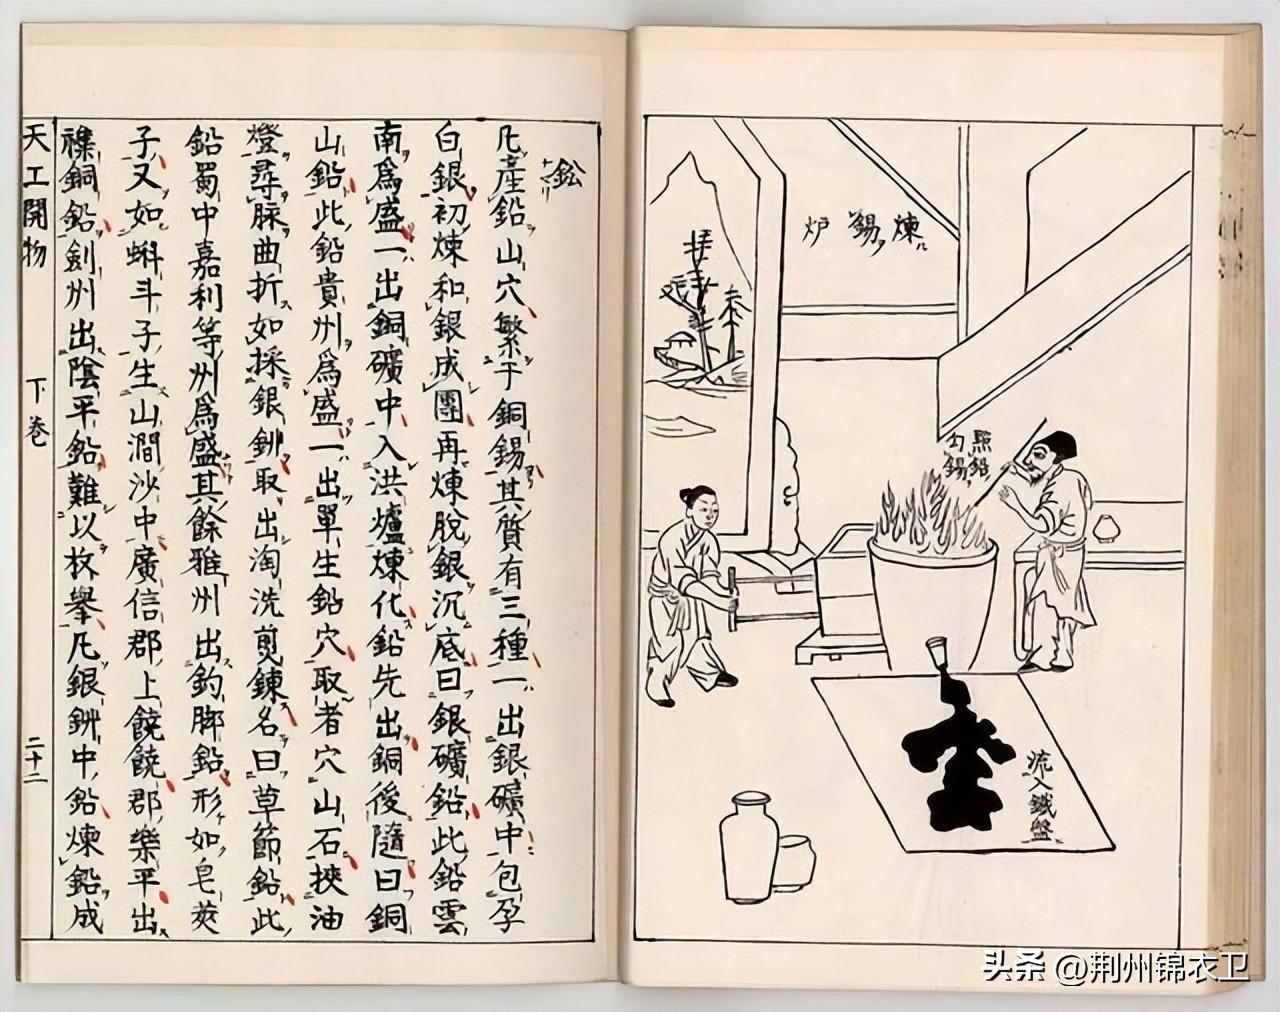 煉錫炉
點鉛
勾錫
流入鐵盤
鈆
凢產鉛山穴繁于銅錫其質有三種一出銀礦中包孕
白銀初煉和銀成團再煉脫銀沉底曰銀礦鉛此鉛雲
南爲盛一出銅礦中入洪爐煉化鉛先出銅後隨曰銅
山鉛此鉛貴州爲盛一出單生鉛穴取者穴山石挾油
燈尋脉曲折如採銀鉚取出淘洗煎鍊名曰草節鉛此
鉛蜀中嘉利等州爲盛其餘雅州出釣脚鉛形如皂莢
子又如蝌斗子生山澗沙中廣信郡上饒饒郡樂平出
襍銅鉛劍州出陰平鉛難以枚舉凢銀鉚中鉛煉鉛成
天工開物 下卷 二十二
头条 @荆州锦衣卫